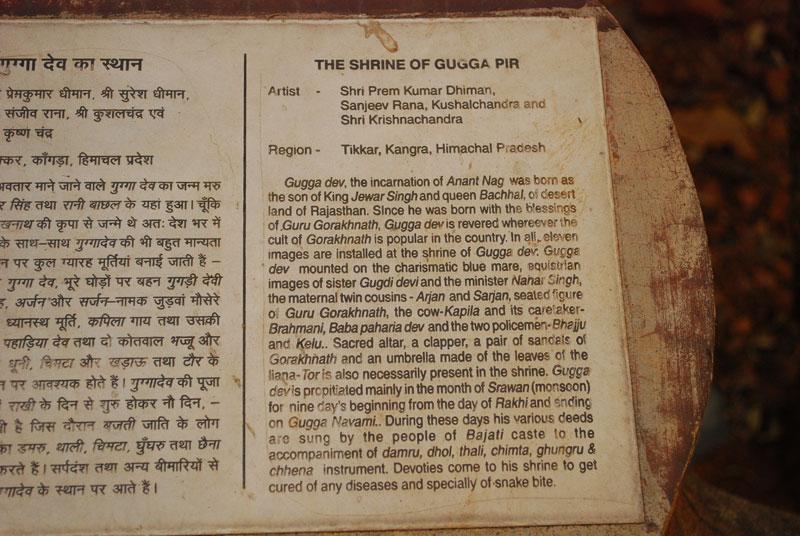 गुग्गा देव का स्थान
प्रेमकुमार धीमान, श्री सुरेश धीमान,
संजीव राना, श्री कुशलचंद्र एवं
कृष्ण चंद्र
क्कर, काँगड़ा, हिमाचल प्रदेश
अवतार माने जाने वाले गुग्गा देव का जन्म मरु
सिंह तथा रानी बाछल के यहां हुआ। चूँकि
की कृपा से जन्मे थे अतः देश भर में
के साथ-साथ गुग्गादेव की भी बहुत मान्यता
न पर कुल ग्यारह मूर्तियां बनाई जाती हैं –
गुग्गा देव, भूरे घोड़ों पर बहन गुगड़ी देवी
अर्जन और सर्जन-नामक जुड़वां मौसेरे
ध्यानस्थ मूर्ति, कपिला गाय तथा उसकी
पहाड़िया देव तथा दो कोतवाल भज्जू और
धूनी, चिमटा और खड़ाऊ तथा टौर के
न पर आवश्यक होते हैं। गुग्गादेव की पूजा
राखी के दिन से शुरु होकर नौ दिन, –
है जिस दौरान बजती जाति के लोग
का डमरु, थाली, चिमटा, घुँघरु तथा छैना
करते हैं। सर्पदंश तथा अन्य बीमारियों से
ग्गादेव के स्थान पर आते हैं।
THE SHRINE OF GUGGA PIR
Artist - Shri Prem Kumar Dhiman,
Sanjeev Rana, Kushalchandra and
Shri Krishnachandra
Region - Tikkar, Kangra, Himachal Pradesh
Gugga dev, the incarnation of Anant Nag was born as
the son of King Jewar Singh and queen Bachhal, of desert
land of Rajasthan. Since he was born with the blessings
of Guru Gorakhnath, Gugga dev is revered whereever the
cult of Gorakhnath is popular in the country. In all, eleven
images are installed at the shrine of Gugga dev. Gugga
dev mounted on the charismatic blue mare, equistrian
images of sister Gugdi devi and the minister Nahar Singh,
the maternal twin cousins - Arjan and Sarjan, seated figure
of Guru Gorakhnath, the cow-Kapila and its caretaker-
Brahmani, Baba paharia dev and the two policemen-Bhajju
and Kelu.. Sacred altar, a clapper, a pair of sandals of
Gorakhnath and an umbrella made of the leaves of the
liana-Tor is also necessarily present in the shrine. Gugga
dev is propitiated mainly in the month of Srawan (monsoon)
for nine day's beginning from the day of Rakhi and ending
on Gugga Navami.. During these days his various deeds
are sung by the people of Bajati caste to the
accompaniment of damru, dhol, thali, chimta, ghungru &
chhena instrument. Devoties come to his shrine to get
cured of any diseases and specially of snake bite.